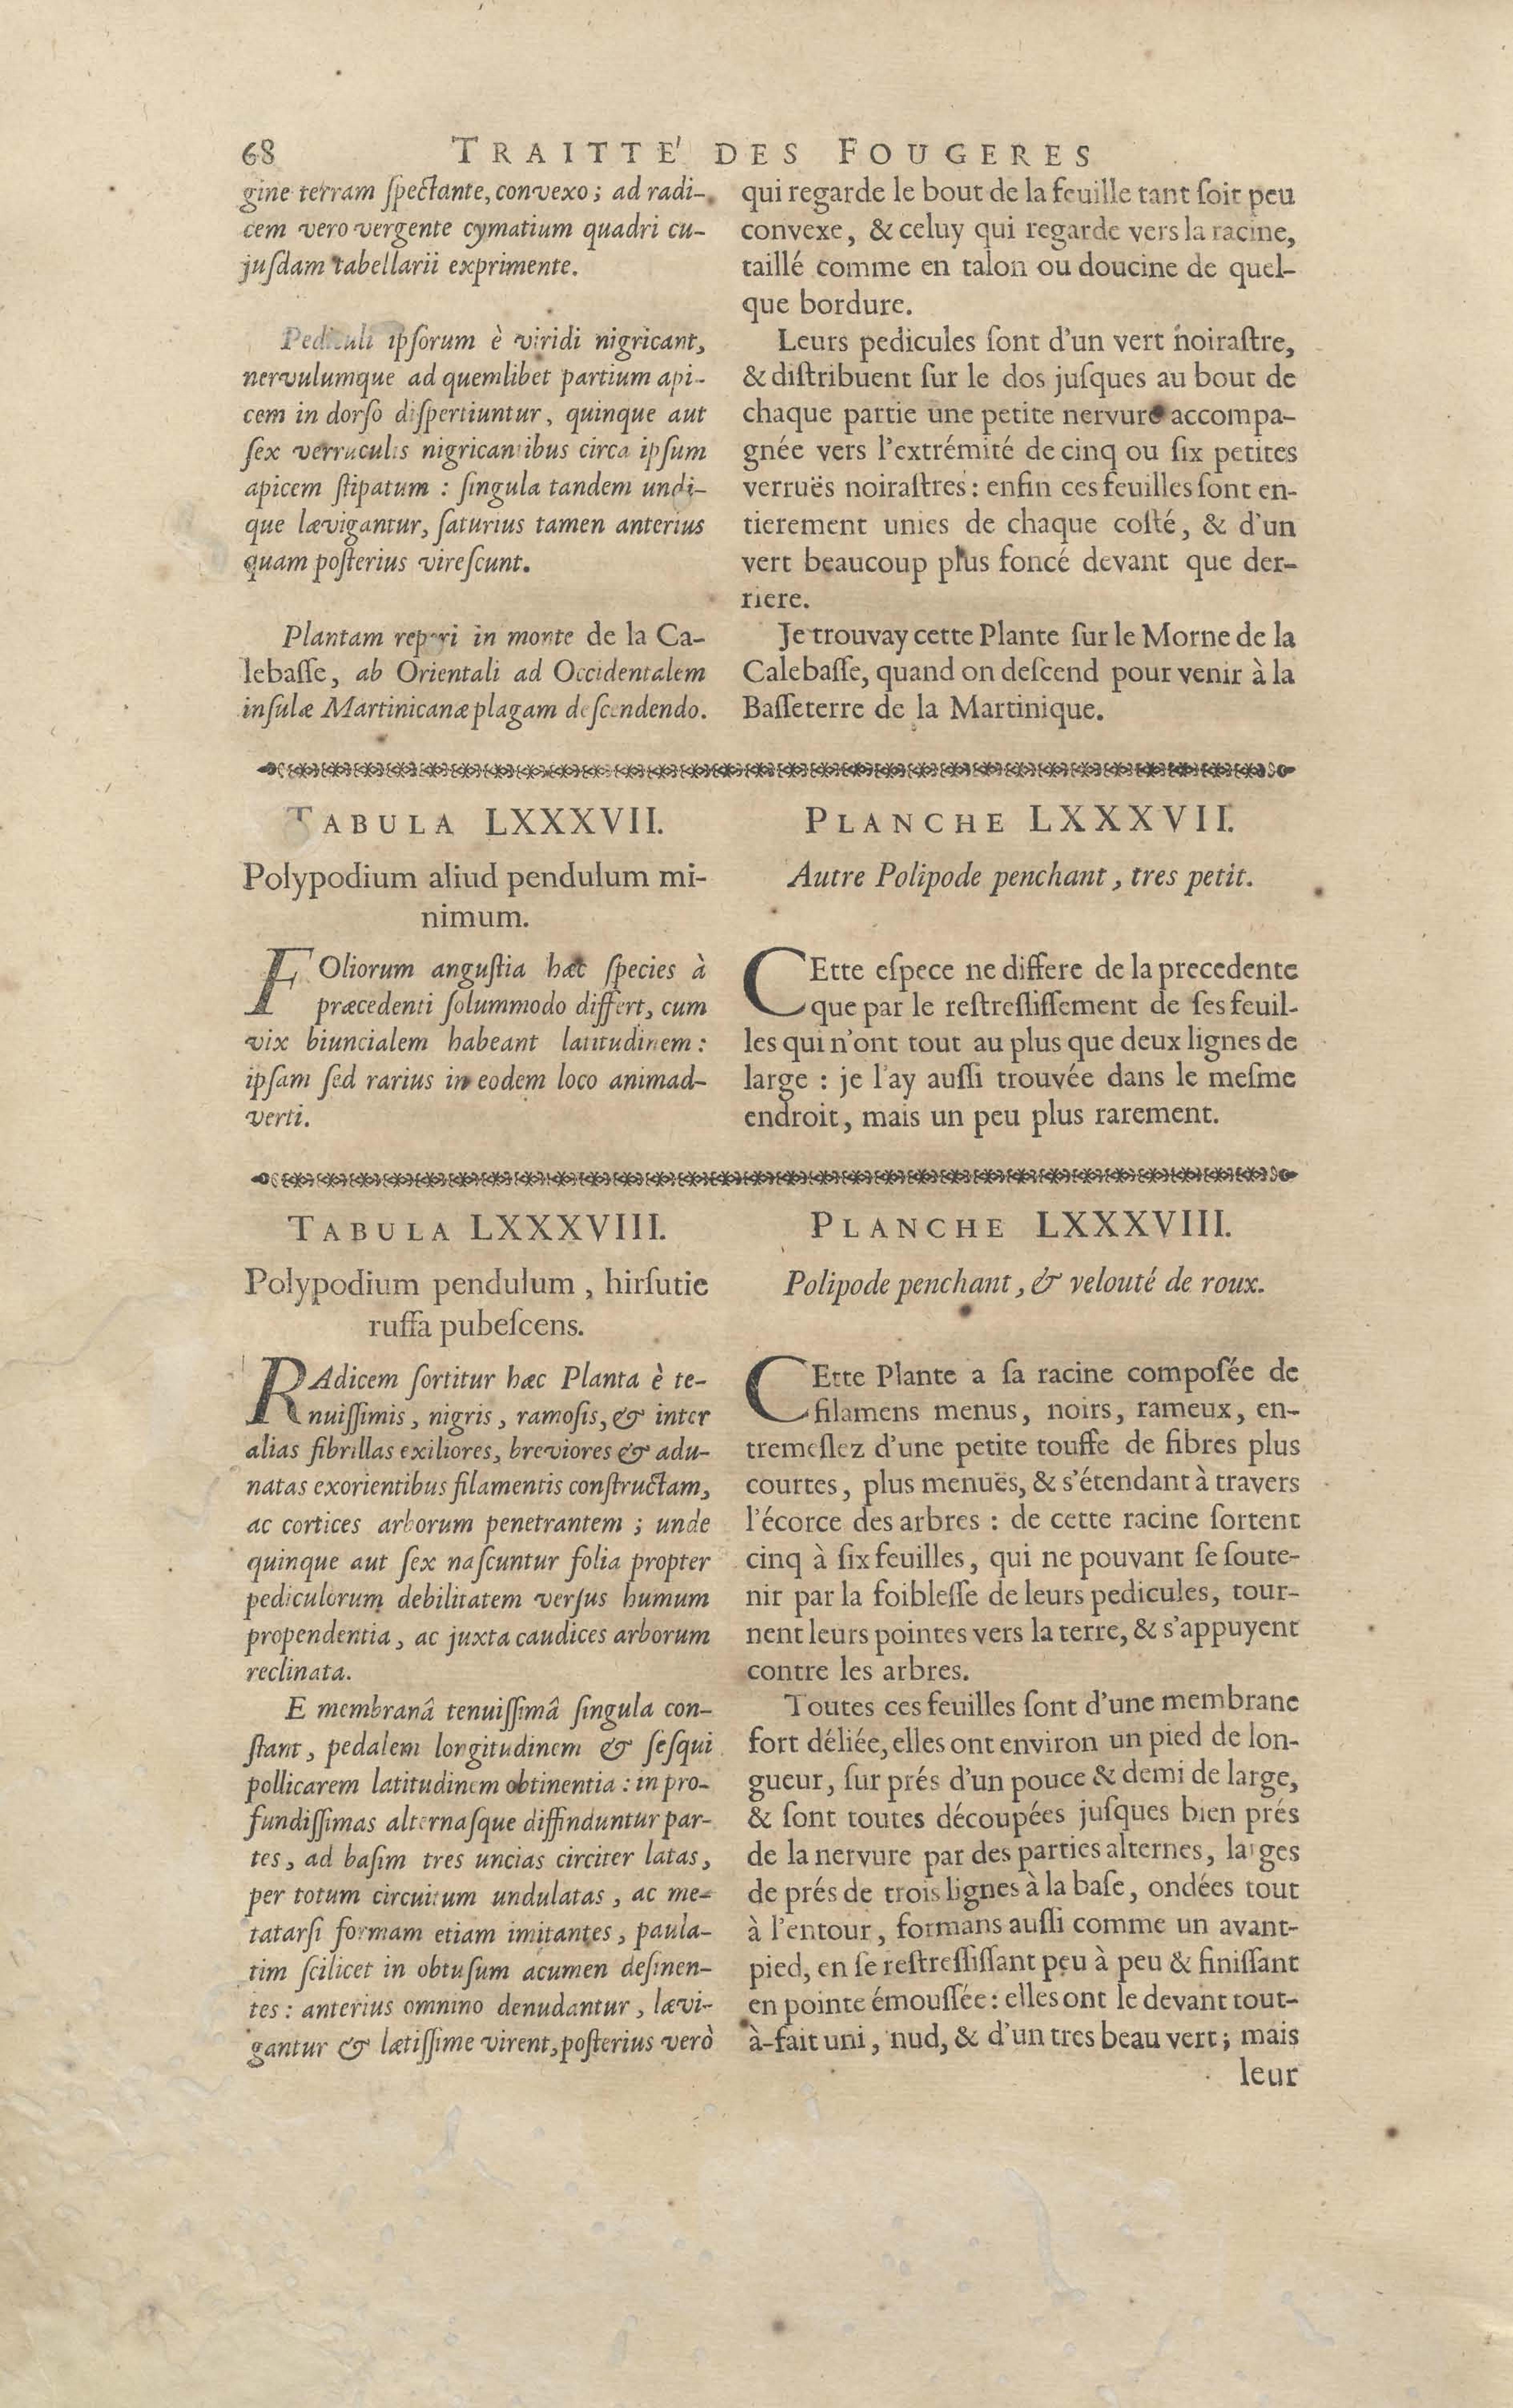 68 TRAITTE' DES FOUGERES
gine terram ſpectante, convexo; ad radi-
cem vero vergente cymatium quadri cu-
juſdam tabellarii exprimente.
Pediculi ipſorum è viridi nigricant,
nervulumque ad quemlibet partium api-
cem in dorſo diſpertiuntur, quinque aut
ſex verruculis nigricantibus circa ipſum
apicem ſtipatum : ſingula tandem undi-
que lævigantur, ſaturius tamen anterius
quam poſterius vireſcunt.
Plantam reperi in monte de la Ca-
lebaſſe, ab Orientali ad Occidentalem
inſulæ Martinicanæ plagam deſcendendo.
qui regarde le bout de la feuille tant ſoit peu
convexe, & celuy qui regarde vers la racine,
taillé comme en talon ou doucine de quel-
que bordure.
Leurs pedicules ſont d'un vert noiraſtre,
& diſtribuent ſur le dos juſques au bout de
chaque partie une petite nervure accompa-
gnée vers l'extrémité de cinq ou ſix petites
verruës noiraſtres : enfin ces feuilles ſont en-
tierement unies de chaque coſté, & d'un
vert beaucoup plus foncé devant que der-
riere.
Je trouvay cette Plante ſur le Morne de la
Calebaſſe, quand on deſcend pour venir à la
Baſſeterre de la Martinique.
TABULA LXXXVII.
Polypodium aliud pendulum mi-
nimum.
FOliorum anguſtia hæc ſpecies à
præcedenti ſolummodo differt, cum
vix biuncialem habeant latitudinem :
ipſam ſed rarius in eodem loco animad-
verti.
PLANCHE LXXXVII.
Autre Polipode penchant, tres petit.
CEtte eſpece ne differe de la precedente
que par le reſtreſſiſſement de ſes feuil-
les qui n'ont tout au plus que deux lignes de
large : je l'ay auſſi trouvée dans le meſme
endroit, mais un peu plus rarement.
TABULA LXXXVIII.
Polypodium pendulum, hirſutie
ruffa pubeſcens.
RAdicem ſortitur hæc Planta è te-
nuiſſimis, nigris, ramoſis, & inter
alias fibrillas exiliores, breviores & adu-
natas exorientibus filamentis conſtructam,
ac cortices arborum penetrantem ; unde
quinque aut ſex naſcuntur folia propter
pediculorum debilitatem verſus humum
propendentia, ac juxta caudices arborum
reclinata.
E membranâ tenuiſſimâ ſingula con-
ſtant, pedalem longitudinem & ſeſqui
pollicarem latitudinem obtinentia : in pro-
fundiſſimas alternaſque diffinduntur par-
tes, ad baſim tres uncias circiter latas,
per totum circuitum undulatas, ac me-
tatarſi formam etiam imitantes, paula-
tim ſcilicet in obtuſum acumen deſinen-
tes : anterius omnino denudantur, lævi-
gantur & lætiſſime virent, poſterius verò
PLANCHE LXXXVIII.
Polipode penchant, & velouté de roux.
CEtte Plante a ſa racine compoſée de
filamens menus, noirs, rameux, en-
tremeſlez d'une petite touffe de fibres plus
courtes, plus menuës, & s'étendant à travers
l'écorce des arbres : de cette racine ſortent
cinq à ſix feuilles, qui ne pouvant ſe ſoute-
nir par la foibleſſe de leurs pedicules, tour-
nent leurs pointes vers la terre, & s'appuyent
contre les arbres.
Toutes ces feuilles ſont d'une membrane
fort déliée, elles ont environ un pied de lon-
gueur, ſur prés d'un pouce & demi de large,
& ſont toutes découpées juſques bien prés
de la nervure par des parties alternes, larges
de prés de trois lignes à la baſe, ondées tout
à l'entour, formans auſſi comme un avant-
pied, en ſe reſtreſſiſſant peu à peu & finiſſant
en pointe émouſſée : elles ont le devant tout-
à-fait uni, nud, & d'un tres beau vert ; mais
leur